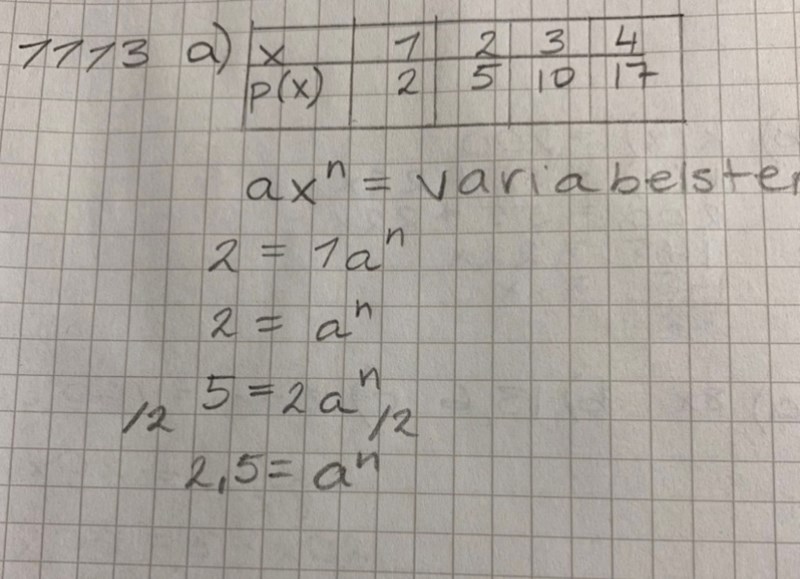 1113 a) x 1 2 3 4
p(x) 2 5 10 17
axⁿ = variabelster
2 = 1aⁿ
2 = aⁿ
/2 5 = 2aⁿ /2
2,5 = aⁿ